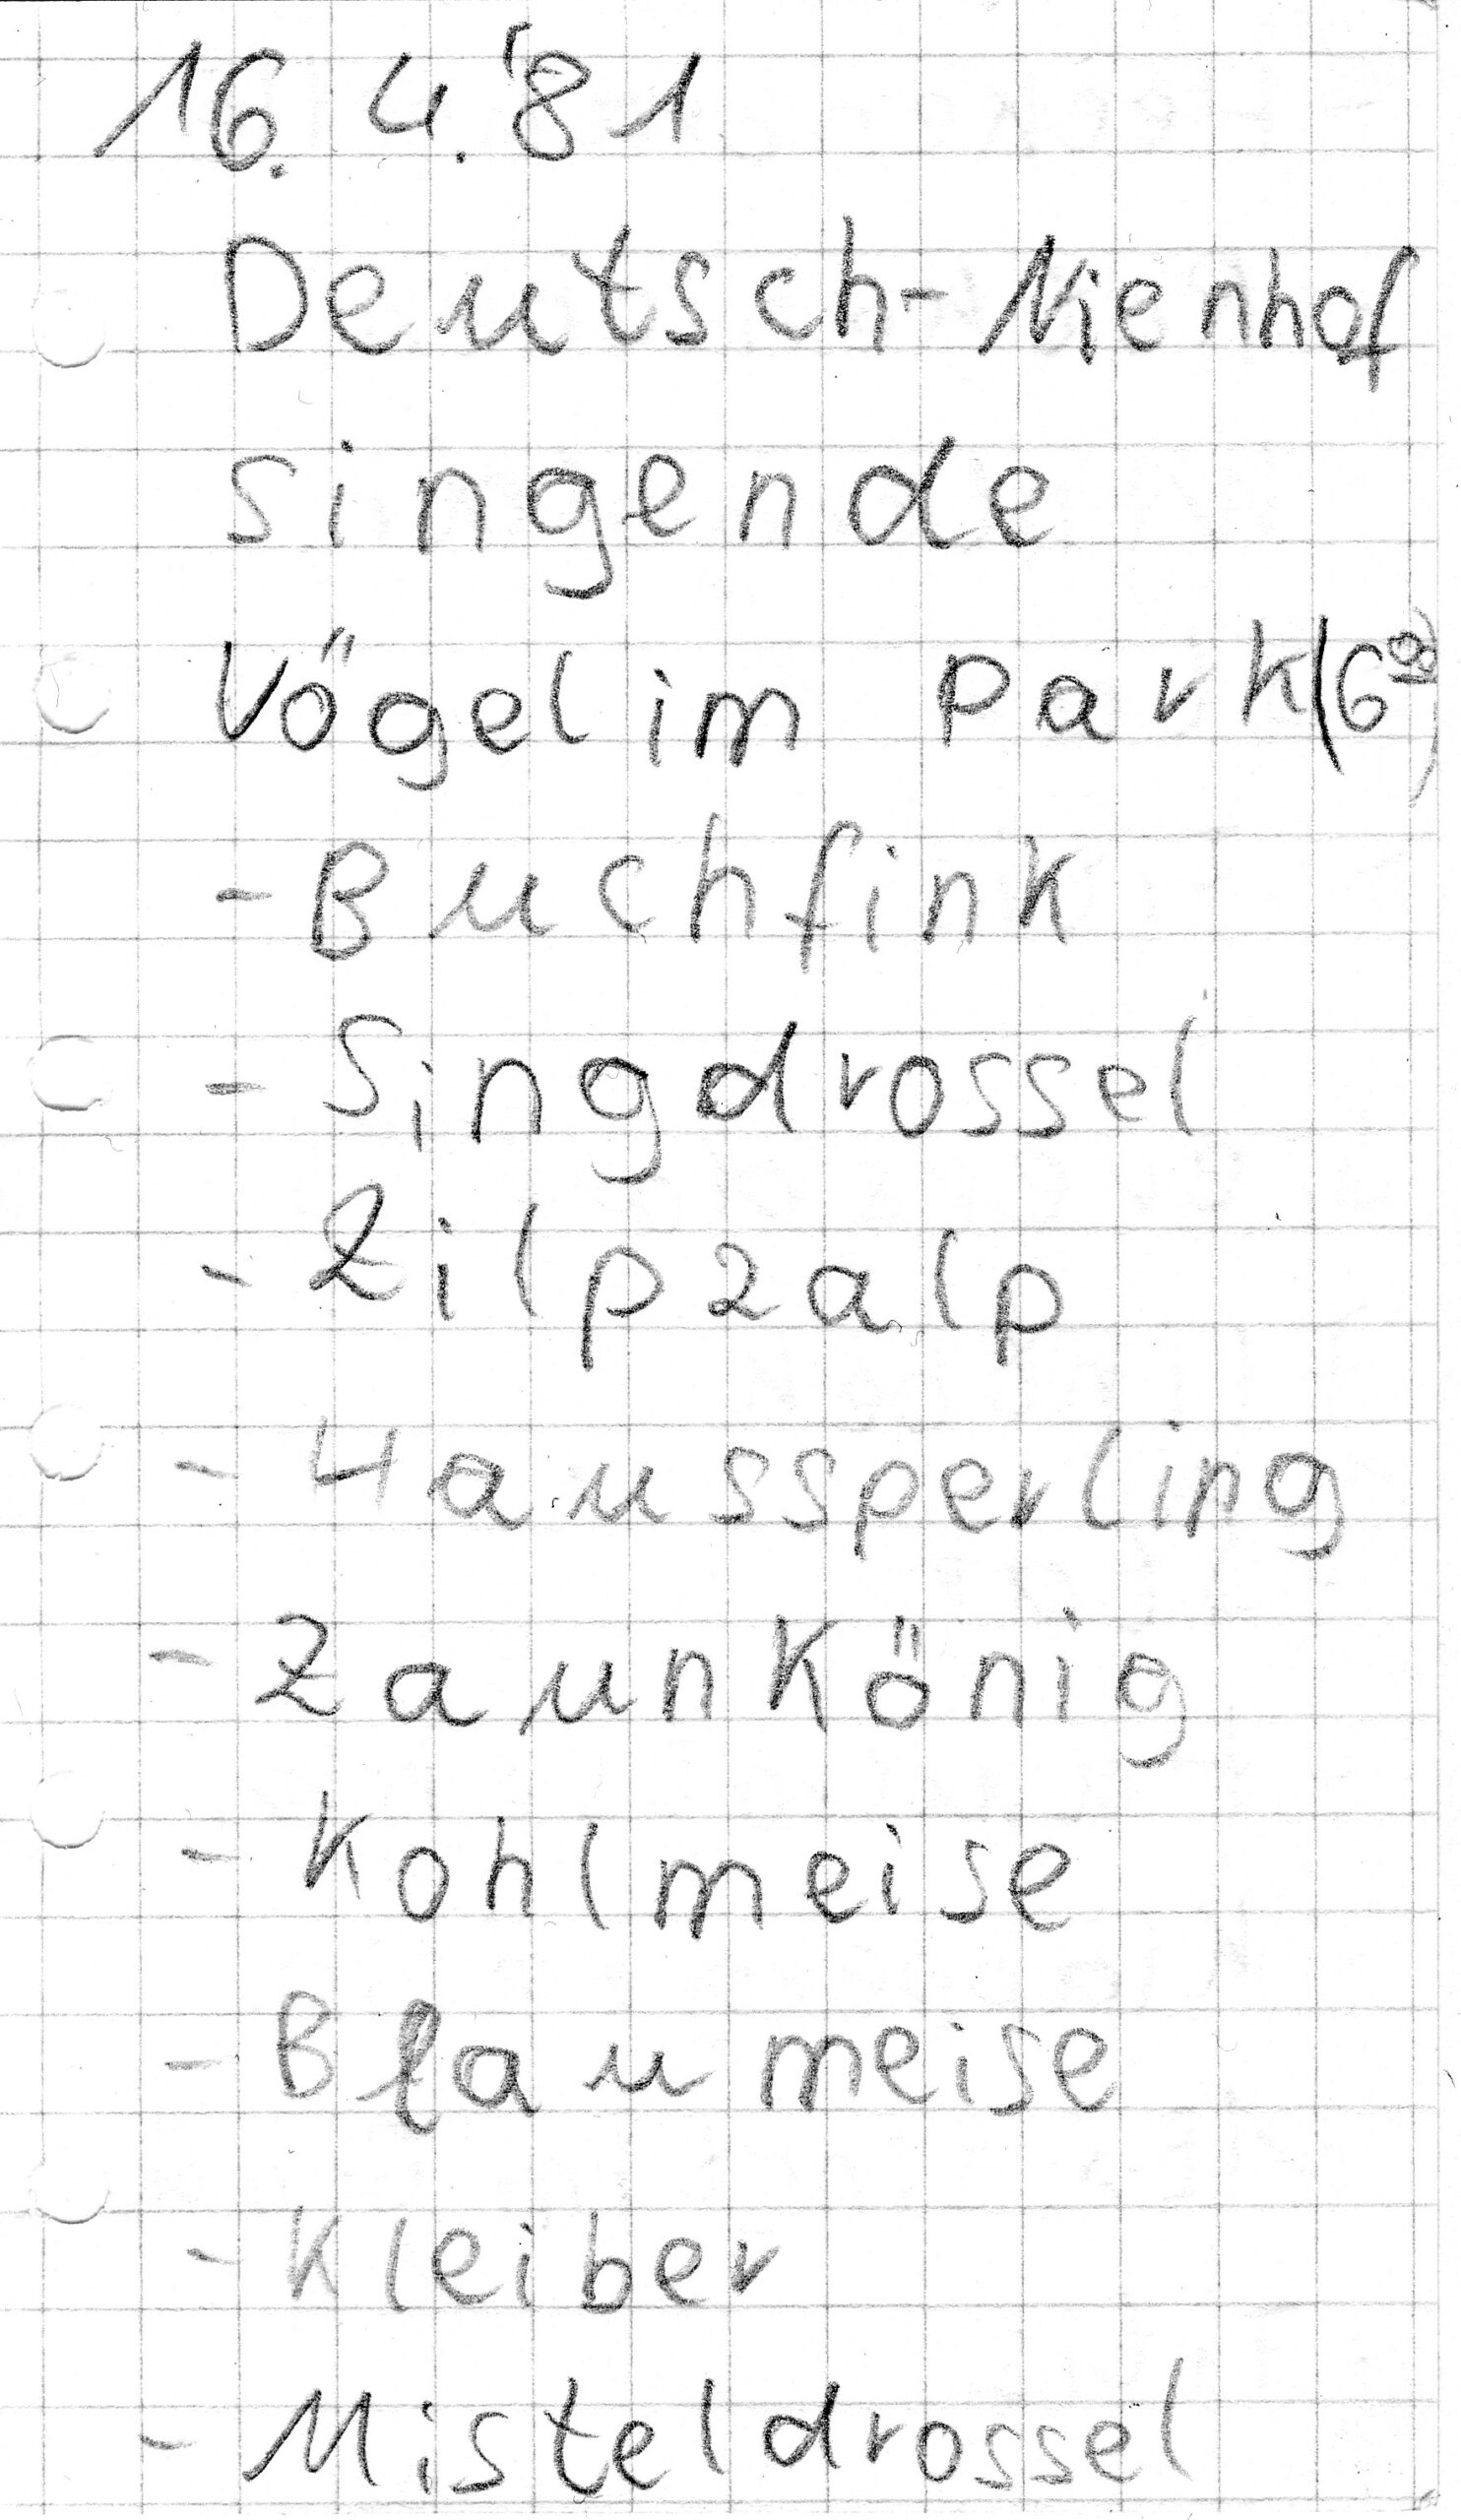 16. 4. '81
Deutsch-Nienhof
singende
Vögel im Park (6⁰⁰)
- Buchfink
- Singdrossel
- Zilpzalp
- Haussperling
- Zaunkönig
- Kohlmeise
- Blaumeise
- Kleiber
- Misteldrossel